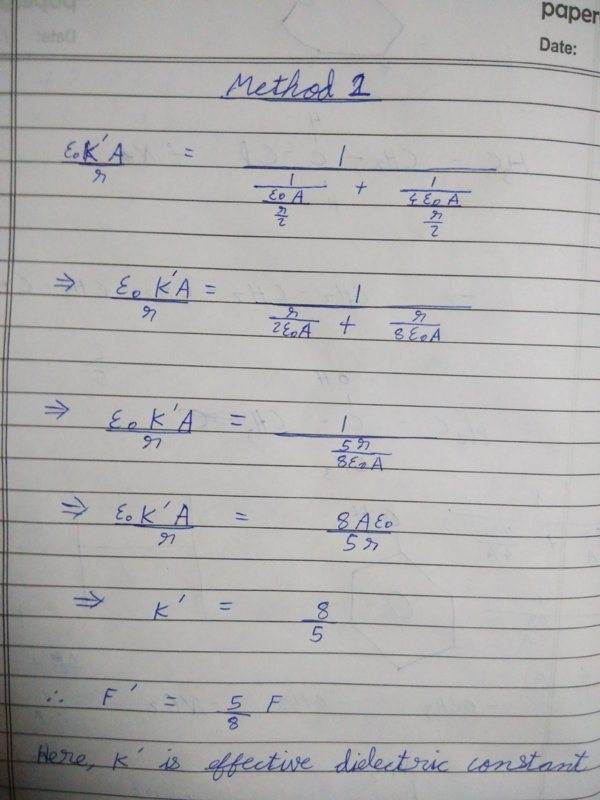 paper
Date:
Method 1
ε₀K'A/r = 1/(1/(ε₀A/(r/2)) + 1/(4ε₀A/(r/2)))
⇒ ε₀K'A/r = 1/(r/2ε₀A + r/8ε₀A)
⇒ ε₀K'A/r = 1/(5r/8ε₀A)
⇒ ε₀K'A/r = 8Aε₀/5r
⇒ K' = 8/5
∴ F' = 5/8 F
Here, K' is effective dielectric constant